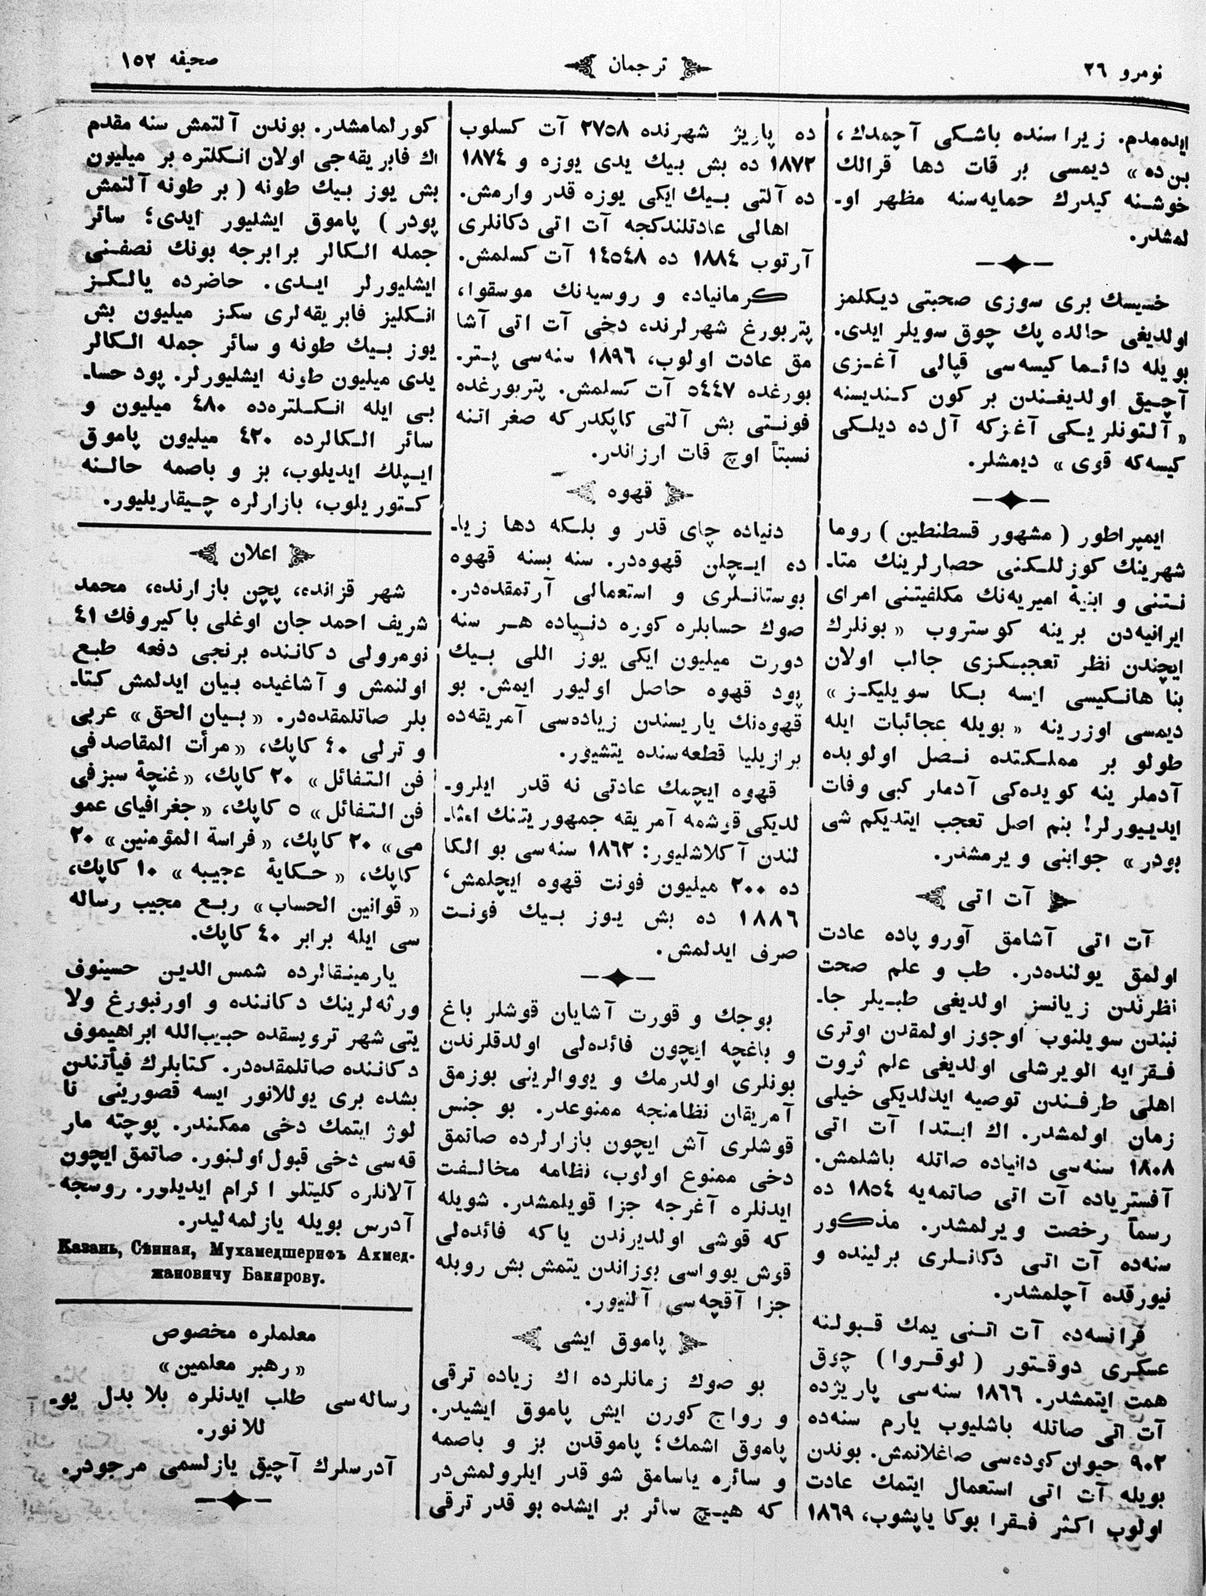 نومرو ٢٦
ترجمان
صحيفه ١٥٢
ايده‌مدم. زيرا سنده باشكى آچمدك،
بن ده» ديمسى بر قات دها قرالك
خوشنه كيدرك حمايه‌سنه مظهر او-
لمشدر.
خسيسك برى سوزى صحبتى ديكلمز
اولديغى حالده پك چوق سويلر ايدى.
بويله دائما كيسه‌سى قپالى آغزى
آچيق اولديغندن بر كون كنديسنه
«آلتونلريكى آغزكه آل ده ديلكى
كيسه‌كه قوى» ديمشلر.
ايمپراطور (مشهور قسطنطين) روما
شهرينك كوزللكنى حصارلرينك متا-
نتنى و ابنيۀ اميريه‌نك مكلفيتنى امراى
ايرانيه‌دن برينه كوستروب «بونلرك
ايچندن نظر تعجبكزى جالب اولان
بنا هانكيسى ايسه بكا سويليكز»
ديمسى اوزرينه «بويله عجائبات ايله
طولو بر مملكتده نصل اولوبده
آدملر ينه كويده‌كى آدملر كبى وفات
ايدييورلر! بنم اصل تعجب ايتديكم شى
بودر» جوابنى ويرمشدر.
آت اتى
آت اتى آشامق آوروپاده عادت
اولمق يولنده‌در. طب و علم صحت
نظرندن زيانسز اولديغى طبيلر جا-
نبندن سويلنوب اوجوز اولمقدن اوترى
فقرايه الويرشلى اولديغى علم ثروت
اهلى طرفندن توصيه ايدلديكى خيلى
زمان اولمشدر. اك ابتدا آت اتى
١٨٠٨ سنه‌سى دانياده صاتله باشلمش.
آفسترياده آت اتى صاتمه‌يه ١٨٥٤ ده
رسماً رخصت ويرلمشدر. مذكور
سنه‌ده آت اتى دكانلرى برلينده و
نيورقده آچلمشدر.
فرانسه‌ده آت اتنى يمك قبولنه
عسكرى دوقتور (لوقروا) چوق
همت ايتمشدر. ١٨٦٦ سنه‌سى پاريژده
آت اتى صاتله باشليوب يارم سنه‌ده
٩٠٢ حيوان كوده‌سى صاغلانمش. بوندن
بويله آت اتى استعمال ايتمك عادت
اولوب اكثر فقرا بوكا ياپشوب، ١٨٦٩
ده پاريژ شهرنده ٢٧٥٨ آت كسلوب
١٨٧٢ ده بش بيك يدى يوزه و ١٨٧٤
ده آلتى بيك ايكى يوزه قدر وارمش.
اهالى عادتلندكجه آت اتى دكانلرى
آرتوب ١٨٨٤ ده ١٤٥٤٨ آت كسلمش.
كرمانياده و روسيه‌نك موسقوا،
پتربورغ شهرلرنده دخى آت اتى آشا
مق عادت اولوب، ١٨٩٦ سنه‌سى پتر-
بورغده ٥٤٤٧ آت كسلمش. پتربورغده
فونتى بش آلتى كاپكدر كه صغر اتنه
نسبتاً اوچ قات ارزاندر.
قهوه
دنياده چاى قدر و بلكه دها زيا-
ده ايچلن قهوه‌در. سنه بسنه قهوه
بوستانلرى و استعمالى آرتمقده‌در.
صوك حسابلره كوره دنياده هر سنه
دورت ميليون ايكى يوز اللى بيك
پود قهوه حاصل اوليور ايمش. بو
قهوه‌نك ياريسندن زياده‌سى آمريقه‌ده
برازيليا قطعه‌سنده يتشيور.
قهوه ايچمك عادتى نه قدر ايلرو-
لديكى قوشمه آمريقه جمهوريتنك امثا-
لندن آكلاشليور: ١٨٦٢ سنه‌سى بو الكا
ده ٢٠٠ ميليون فونت قهوه ايچلمش،
١٨٨٦ ده بش يوز بيك فونت
صرف ايدلمش.
بوجك و قورت آشايان قوشلر باغ
و باغچه ايچون فائده‌لى اولدقلرندن
بونلرى اولدرمك و يووالرينى بوزمق
آمريقان نظامنجه ممنوعدر. بو جنس
قوشلرى آش ايچون بازارلرده صاتمق
دخى ممنوع اولوب، نظامه مخالفت
ايدنلره آغرجه جزا قويلمشدر. شويله
كه قوشى اولديرندن ياكه فائده‌لى
قوش يوواسى بوزاندن يتمش بش روبله
جزا آقچه‌سى آلنيور.
پاموق ايشى
بو صوك زمانلرده اك زياده ترقى
و رواج كورن ايش پاموق ايشيدر.
پاموق اشمك؛ پاموقدن بز و باصمه
و سائره ياسامق شو قدر ايلرولمش‌در
كه هيچ سائر بر ايشده بو قدر ترقى
كورلمامشدر. بوندن آلتمش سنه مقدم
اك فابريقه‌جى اولان انكلتره بر ميليون
بش يوز بيك طونه (بر طونه آلتمش
پودر) پاموق ايشليور ايدى؛ سائر
جمله الكالر برابرجه بونك نصفنى
ايشليورلر ايدى. حاضرده يالكز
انكليز فابريقه‌لرى سكز ميليون بش
يوز بيك طونه و سائر جمله الكالر
يدى ميليون طونه ايشليورلر. پود حسا-
بى ايله انكلتره‌ده ٤٨٠ ميليون و
سائر الكالرده ٤٢٠ ميليون پاموق
ايپلك ايديلوب، بز و باصمه حالنه
كتوريلوب، بازارلره چيقاريليور.
اعلان
شهر قزانده، پچن بازارنده، محمد
شريف احمد جان اوغلى باكيروفك ٤١
نومرولى دكاننده برنجى دفعه طبع
اولنمش و آشاغيده بيان ايدلمش كتا-
بلر صاتلمقده‌در. «بيان الحق» عربى
و تركى ٤٠ كاپك، «مرأت المقاصد فى
فن التفائل» ٢٠ كاپك، «غنچۀ سبز فى
فن التفائل» ٥ كاپك، «جغرافياى عمو
مى» ٢٠ كاپك، «فراسة المؤمنين» ٢٠
كاپك، «حكايۀ عجيبه» ١٠ كاپك،
«قوانين الحساب» ربع مجيب رساله
سى ايله برابر ٤٠ كاپك.
يارمينقالرده شمس‌الدين حسينوف
ورثه‌لرينك دكاننده و اورنبورغ ولا
يتى شهر ترويسقده حبيب‌الله ابراهيموف
دكاننده صاتلمقده‌در. كتابلرك فيأتندن
بشده برى يوللانور ايسه قصورينى نا
لوژ ايتمك دخى ممكندر. پوچته مار
قه‌سى دخى قبول اولنور. صاتمق ايچون
آلانلره كليتلو اكرام ايديلور. روسجه
آدرس بويله يازلمه‌ليدر.
Казань, Сѣнная, Мухамедшерифъ Ахмед-
жановичу Бакирову.
معلملره مخصوص
«رهبر معلمين»
رساله‌سى طلب ايدنلره بلا بدل يو-
للانور.
آدرسلرك آچيق يازلسمى مرجودر.